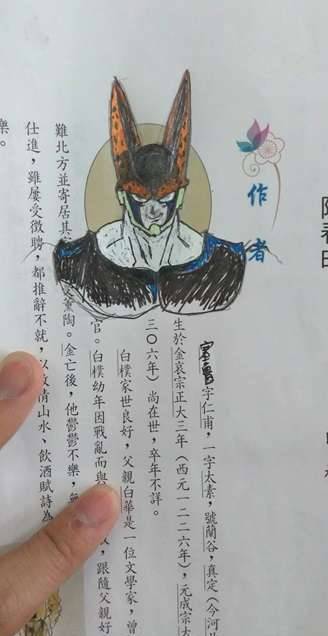 作者
字仁甫，一字太素，號蘭谷，真定（今河
生於金哀宗正大三年（西元一二二六年），元成宗大
三〇六年）尚在世，卒年不詳。
白樸家世良好，父親白華是一位文學家，曾
官。白樸幼年因戰亂而與，跟隨父親好
難北方並寄居其薰陶。金亡後，他鬱鬱不樂，
仕進，雖屢受徵聘，都推辭不就，以放情山水、飲酒賦詩為
樂。